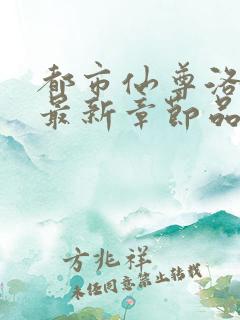 都市仙尊洛
最新章节品
方兆祥
未经同意禁止转载